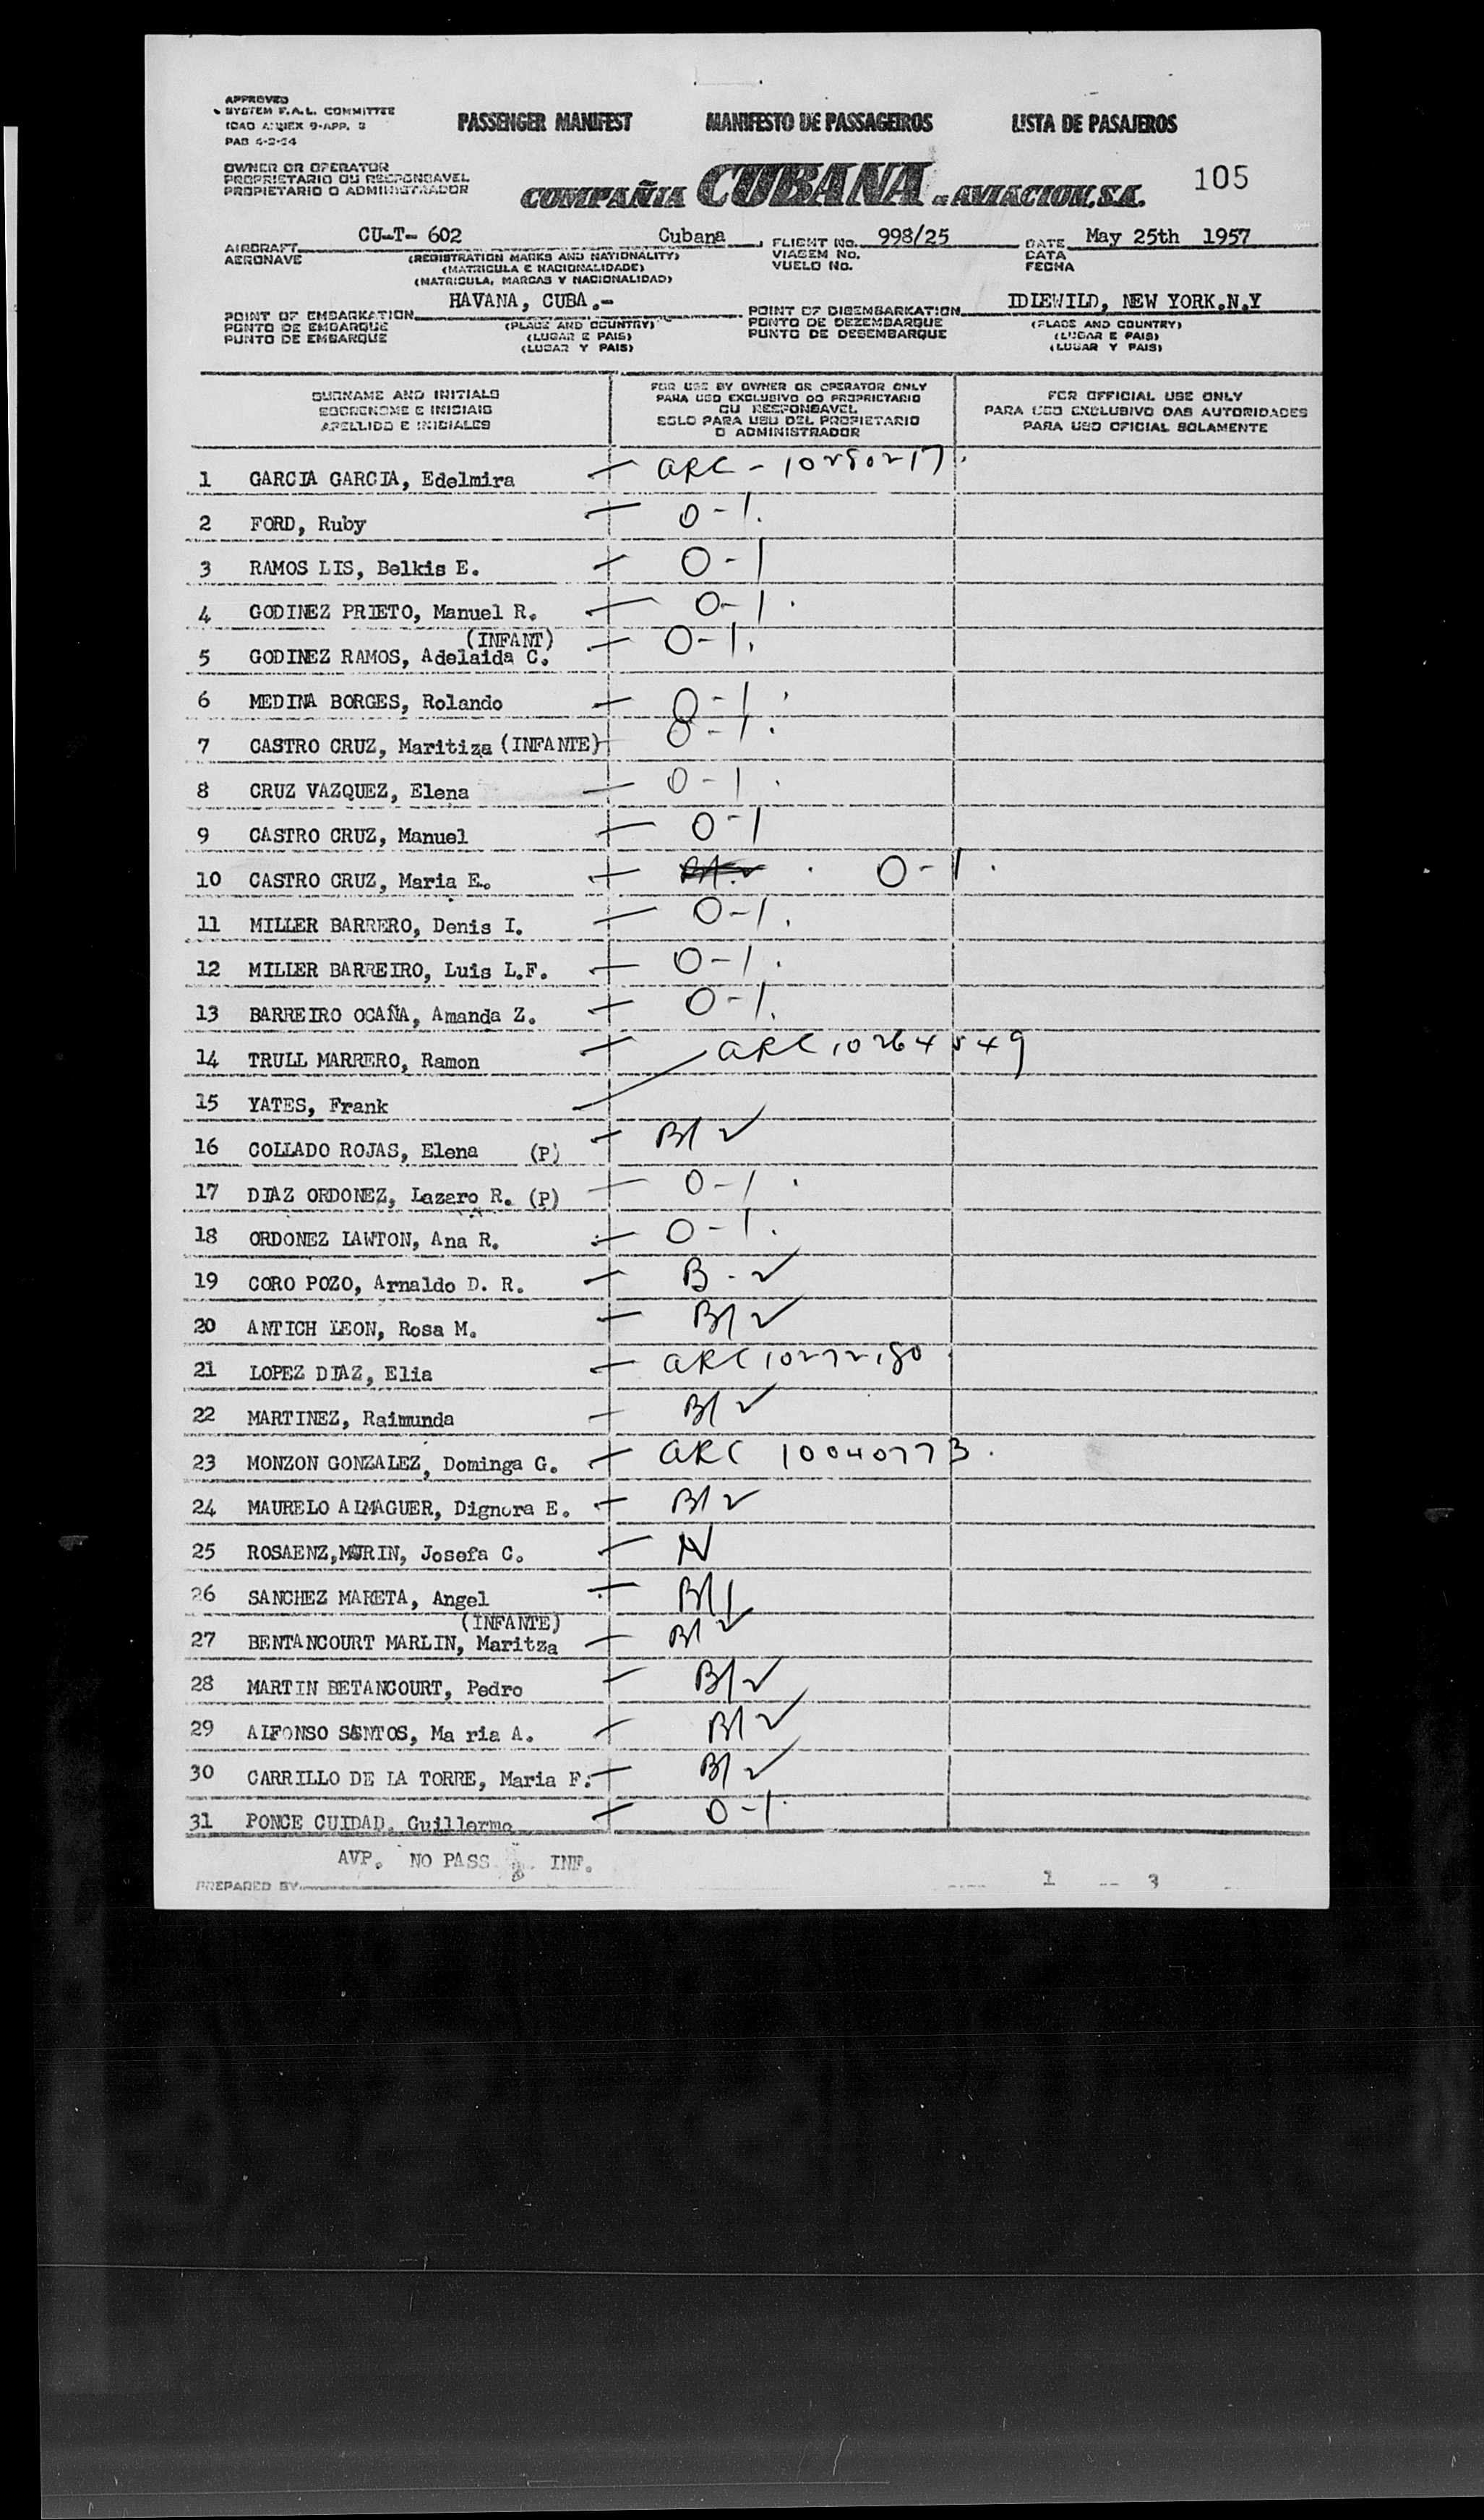 APPROVED
SYSTEM F.A.L. COMMITTEE
ICAO ANNEX 9-APP. 3
PASSENGER MANIFEST MANIFESTO DE PASSAGEIROS LISTA DE PASAJEROS
OWNER OR OPERATOR
PROPRIETARIO OU RESPONSAVEL
PROPIETARIO O ADMINISTRADOR
COMPAÑIA CUBANA DE AVIACION, S.A. 105
AIRCRAFT CU-T- 602 Cubana FLIGHT No. 998/25 DATE May 25th 1957
AERONAVE (REGISTRATION MARKS AND NATIONALITY) VIAGEM No. DATA
(MATRICULA E NACIONALIDADE) VUELO No. FECHA
(MATRICULA, MARCAS Y NACIONALIDAD)
POINT OF EMBARKATION HAVANA, CUBA.- POINT OF DISEMBARKATION IDLEWILD, NEW YORK.N.Y
PONTO DE EMBARQUE (PLACE AND COUNTRY) PONTO DE DEZEMBARQUE (PLACE AND COUNTRY)
PUNTO DE EMBARQUE (LUGAR E PAIS) PUNTO DE DESEMBARQUE (LUGAR E PAIS)
(LUGAR Y PAIS) (LUGAR Y PAIS)
SURNAME AND INITIALS
SOBRENOME E INICIAIS
APELLIDO E INICIALES
FOR USE BY OWNER OR OPERATOR ONLY
PARA USO EXCLUSIVO DO PROPRIETARIO
OU RESPONSAVEL
SOLO PARA USO DEL PROPIETARIO
O ADMINISTRADOR
FOR OFFICIAL USE ONLY
PARA USO EXCLUSIVO DAS AUTORIDADES
PARA USO OFICIAL SOLAMENTE
1 GARCIA GARCIA, Edelmira — ARC - 10280217.
2 FORD, Ruby — O-1.
3 RAMOS LIS, Belkis E. — O-1
4 GODINEZ PRIETO, Manuel R. — O-1.
(INFANT)
5 GODINEZ RAMOS, Adelaida C. — O-1.
6 MEDINA BORGES, Rolando — O-1
7 CASTRO CRUZ, Maritiza (INFANTE) O-1.
8 CRUZ VAZQUEZ, Elena — O-1.
9 CASTRO CRUZ, Manuel — O-1
10 CASTRO CRUZ, Maria E. — O-1.
11 MILLER BARRERO, Denis I. — O-1.
12 MILLER BARREIRO, Luis L.F. — O-1.
13 BARREIRO OCAÑA, Amanda Z. — O-1.
14 TRULL MARRERO, Ramon — ARC 10264849
15 YATES, Frank
16 COLLADO ROJAS, Elena (P) — B/2
17 DIAZ ORDONEZ, Lazaro R. (P) — O-1.
18 ORDONEZ LAWTON, Ana R. — O-1.
19 CORO POZO, Arnaldo D. R. — B-2
20 ANTICH LEON, Rosa M. — B/2
21 LOPEZ DIAZ, Elia — ARC 10272180
22 MARTINEZ, Raimunda — B/2
23 MONZON GONZALEZ, Dominga G. — ARC 10040773.
24 MAURELO ALMAGUER, Dignora E. — B/2
25 ROSAENZ,MURIN, Josefa C. — N
26 SANCHEZ MARETA, Angel — B/1
(INFANTE)
27 BENTANCOURT MARLIN, Maritza — B/2
28 MARTIN BETANCOURT, Pedro — B/2
29 ALFONSO SANTOS, Ma ria A. — B/2
30 CARRILLO DE LA TORRE, Maria F. — B/2
31 PONCE CUIDAD, Guillermo — O-1.
AVP. NO PASS INF.
PREPARED BY 1 3